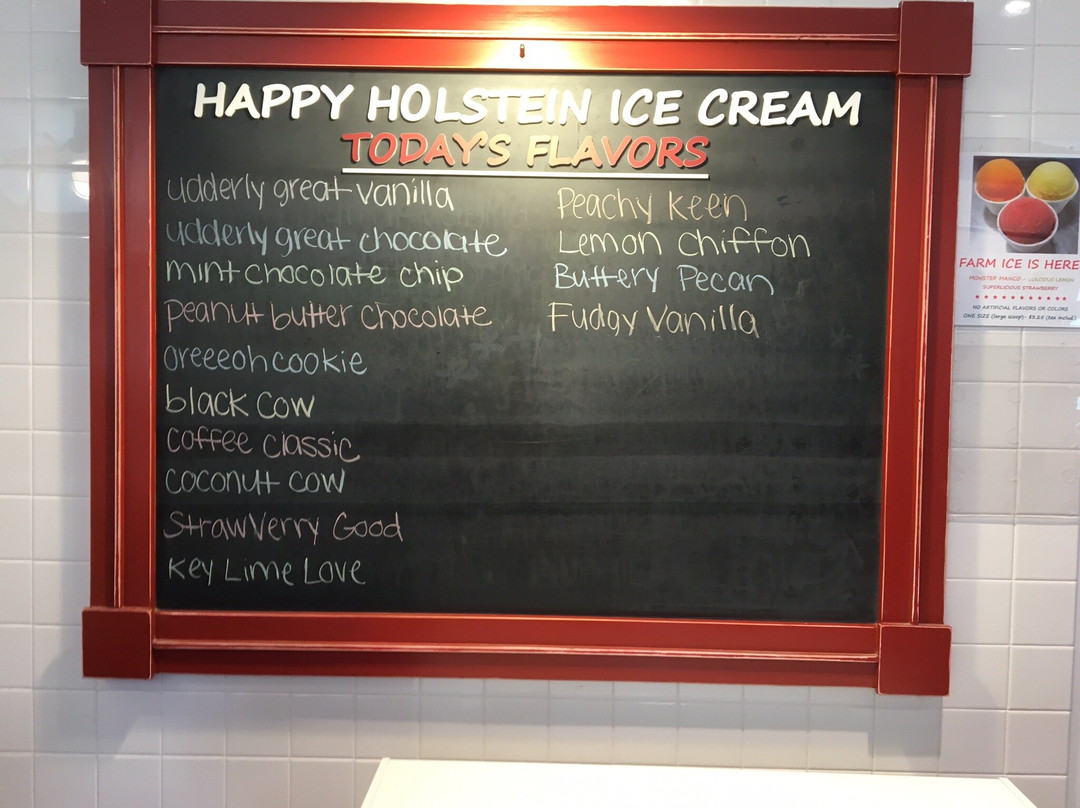 HAPPY HOLSTEIN ICE CREAM
TODAY'S FLAVORS
udderly great vanilla
udderly great chocolate
mint chocolate chip
peanut butter chocolate
oreeeoh cookie
black cow
coffee classic
coconut cow
StrawVerry Good
Key Lime Love
Peachy Keen
Lemon Chiffon
Buttery Pecan
Fudgy Vanilla
FARM ICE IS HERE
MONSTER MANGO - LUSCIOUS LEMON
SUPERLICIOUS STRAWBERRY
NO ARTIFICIAL FLAVORS OR COLORS
ONE SIZE (large scoop)- $5.25 (tax includ.)